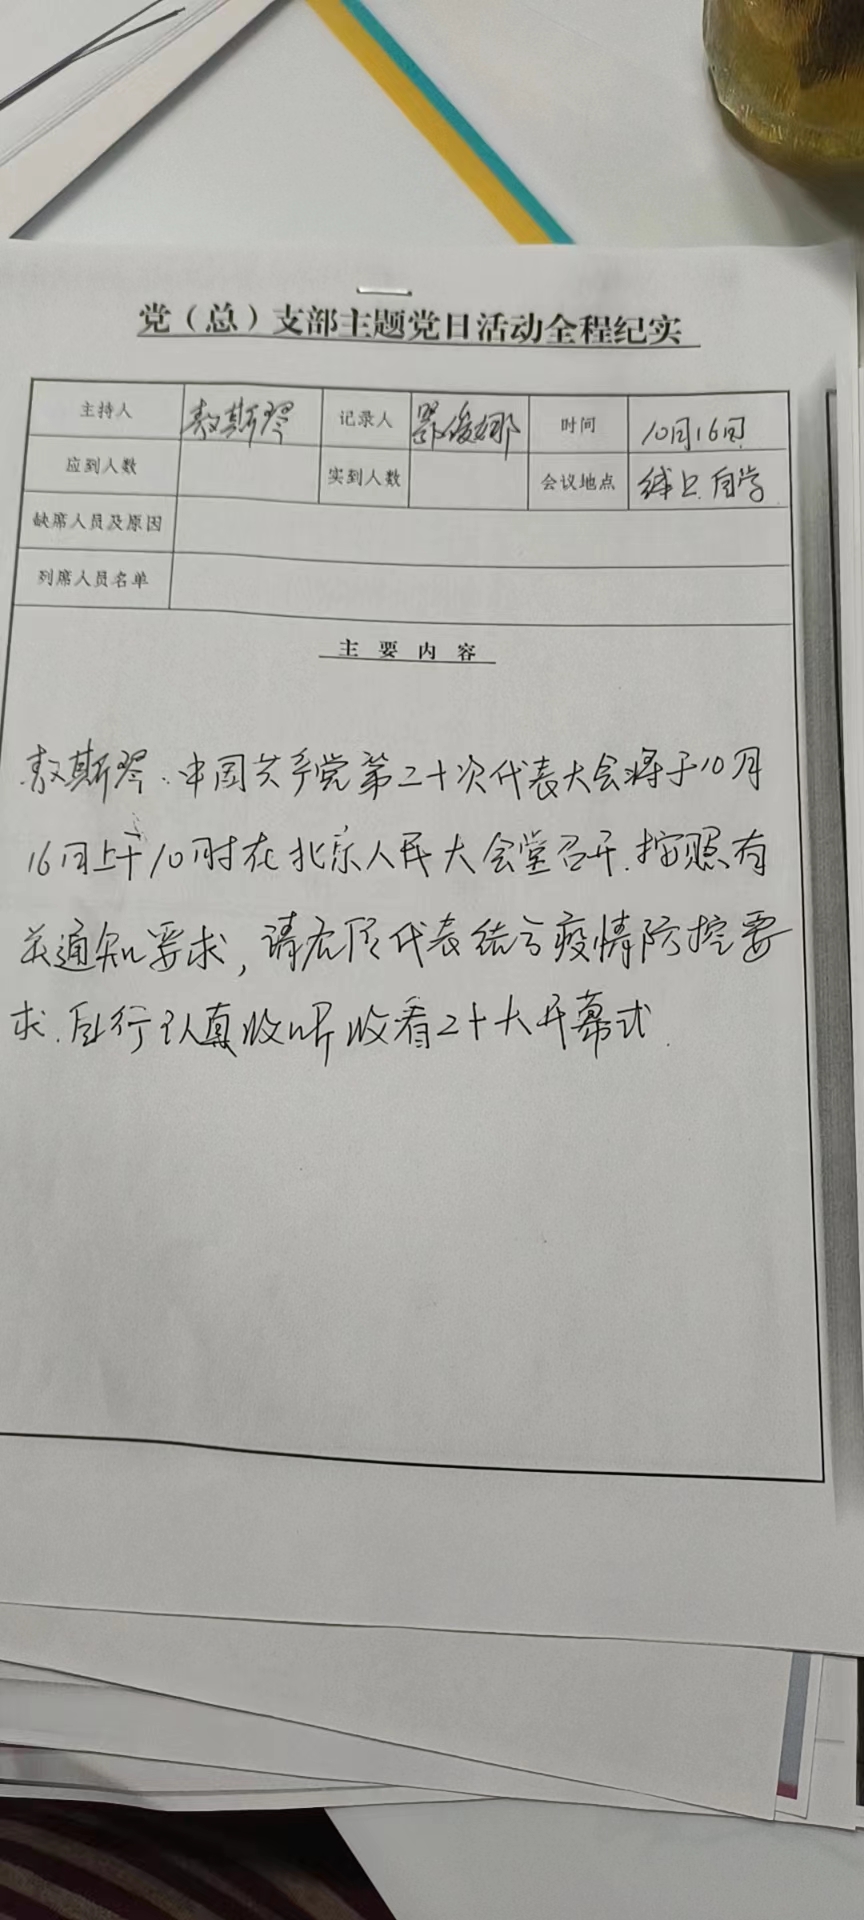 党（总）支部主题党日活动全程纪实
主持人 敖斯琴 记录人 鄂俊娜 时间 10月16日
应到人数 实到人数 会议地点 线上自学
缺席人员及原因
列席人员名单
主要内容
敖斯琴：中国共产党第二十次代表大会将于10月
16日上午10时在北京人民大会堂召开.按照有
关通知要求，请各位代表结合疫情防控要
求.自行认真收听收看二十大开幕式.